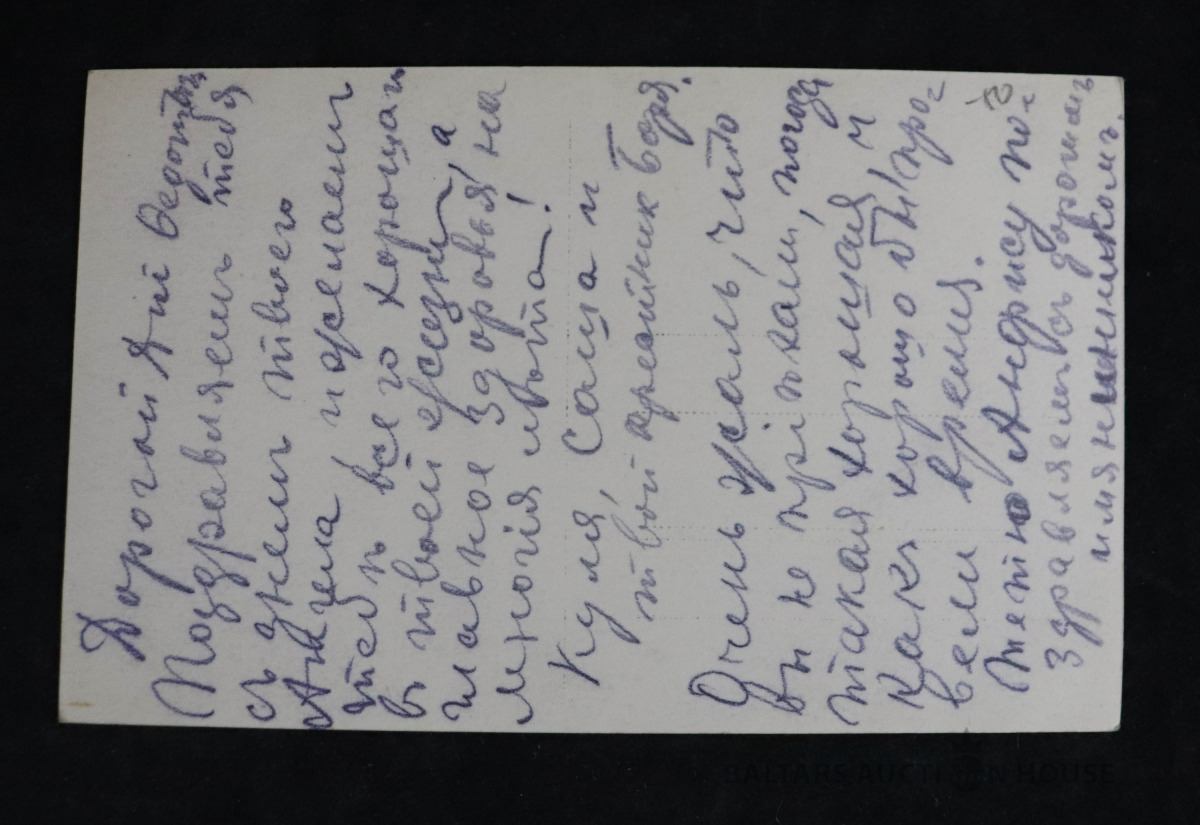 Дорогой Яий Ѳедотыч
Поздравляемъ тебя
съ днемъ твоего
Ангела и желаемъ
тебѣ всего хорошаго
въ твоей жезни а
главное здоровья, на
многія лѣта!
Куля, Саша и
твой крестник Бодя.
Очень жаль, что
вы не пріѣхали, погода
такая хорошая и
какъ хорошо бы про=
вели время.
Тетю Андрису по=
здравляемъ съ дорогимъ
имянинникомъ.
10
BALTARS AUCTION HOUSE